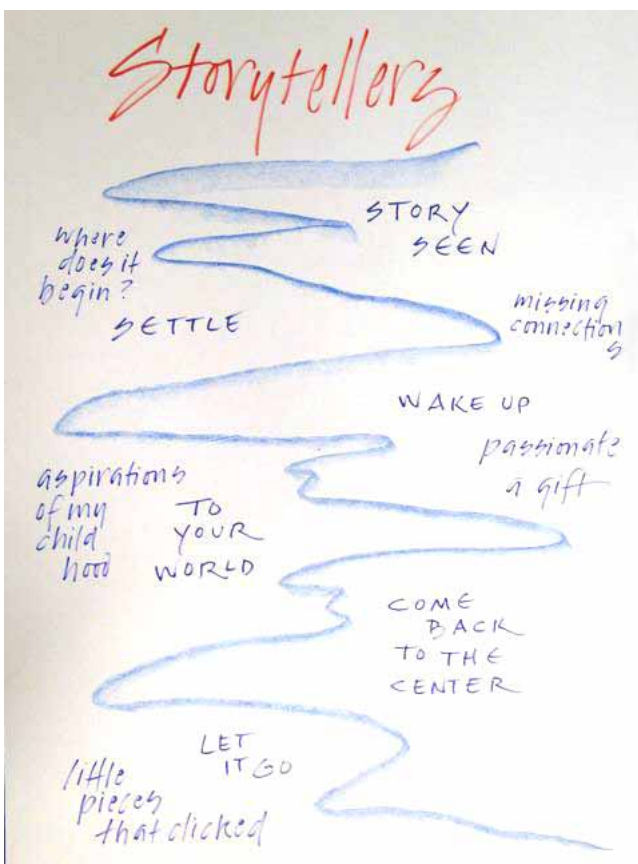 Storytellers
STORY
SEEN
where
does it
begin?
SETTLE
missing
connection
s
WAKE UP
passionate
a gift
aspirations
of my
child
hood
TO
YOUR
WORLD
COME
BACK
TO THE
CENTER
LET
IT GO
little
pieces
that clicked